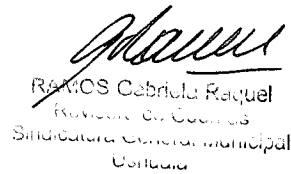 RAMOS Gabriela Raquel
Revisora de Cuentas
Sindicatura General Municipal
Ushuaia